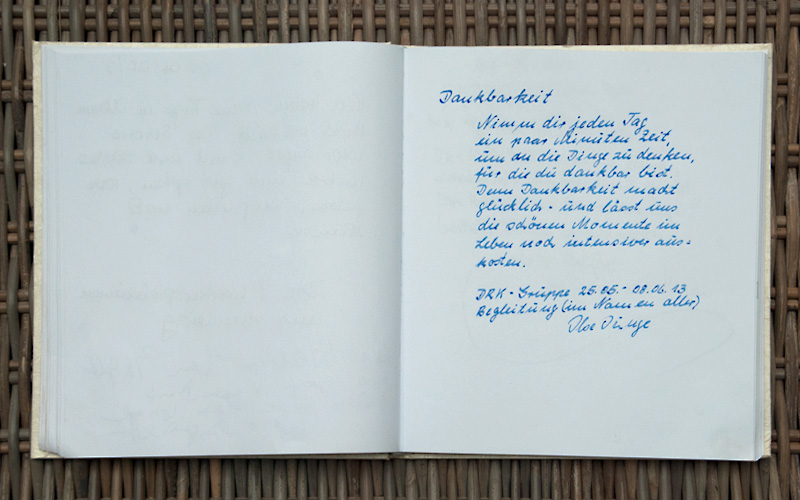 Dankbarkeit
Nimm dir jeden Tag
ein paar Minuten Zeit,
um an die Dinge zu denken,
für die du dankbar bist.
Denn Dankbarkeit macht
glücklich - und lässt uns
die schönen Momente im
Leben noch intensiver aus=
kosten.
DRK - Gruppe 25.05.- 08.06.13
Begleitung (im Namen aller)
Ilse